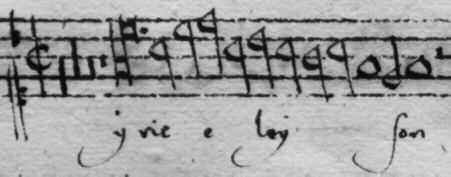 yrie e ley son